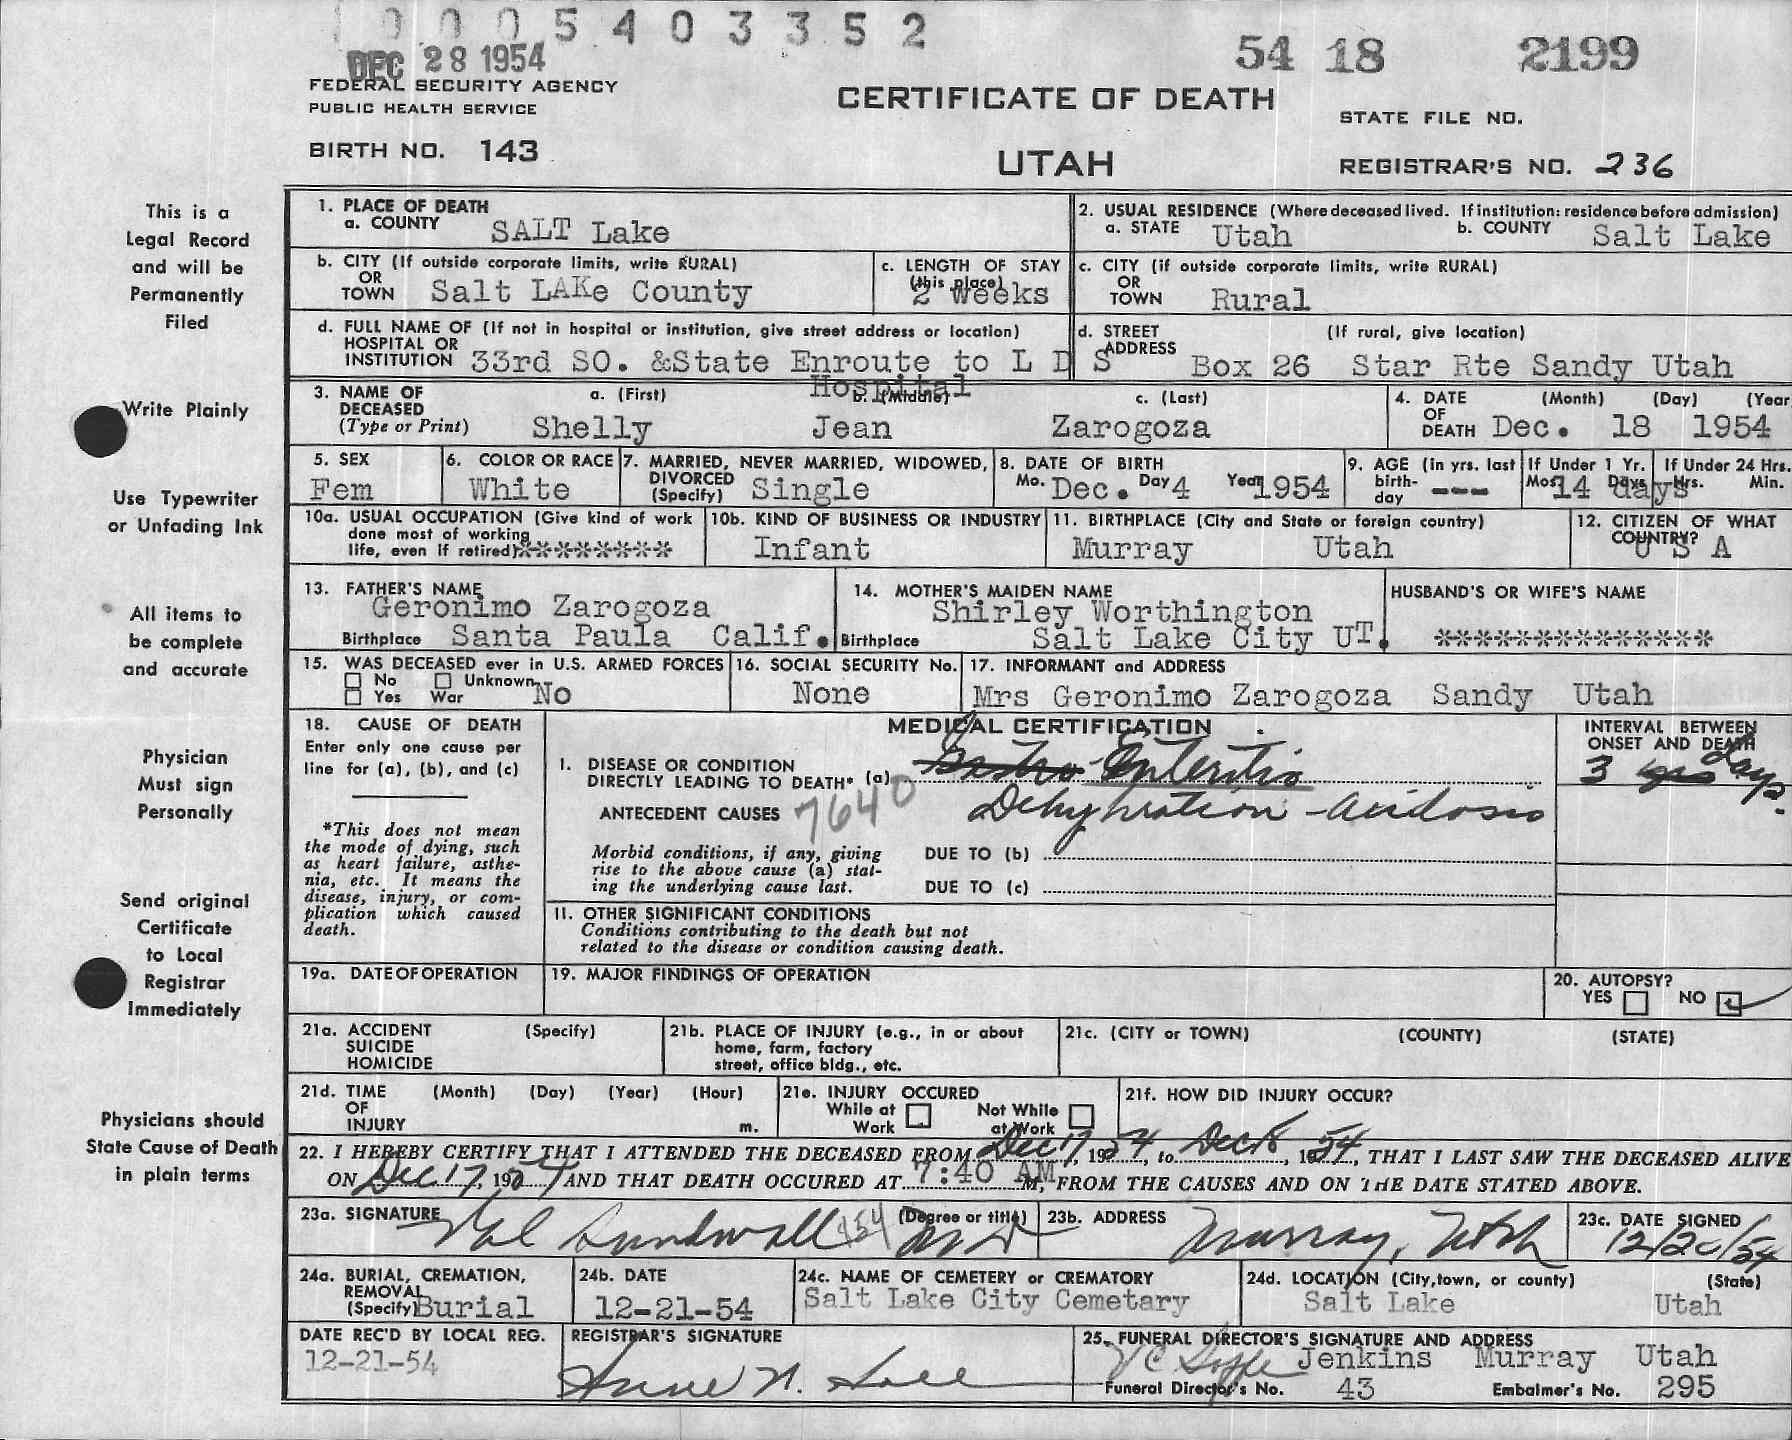 0005403352
DEC 28 1954
54 18 2199
FEDERAL SECURITY AGENCY
PUBLIC HEALTH SERVICE
CERTIFICATE OF DEATH
STATE FILE NO.
BIRTH NO. 143
UTAH
REGISTRAR'S NO. 236
This is a
Legal Record
and will be
Permanently
Filed
Write Plainly
Use Typewriter
or Unfading Ink
All items to
be complete
and accurate
Physician
Must sign
Personally
Send original
Certificate
to Local
Registrar
Immediately
Physicians should
State Cause of Death
in plain terms
1. PLACE OF DEATH
a. COUNTY SALT Lake
2. USUAL RESIDENCE (Where deceased lived. If institution: residence before admission)
a. STATE Utah b. COUNTY Salt Lake
b. CITY (If outside corporate limits, write RURAL)
OR
TOWN Salt LAKe County
c. LENGTH OF STAY
(this place)
2 Weeks
c. CITY (if outside corporate limits, write RURAL)
OR
TOWN Rural
d. FULL NAME OF (If not in hospital or institution, give street address or location)
HOSPITAL OR
INSTITUTION 33rd SO. &State Enroute to L D S
Hospital
d. STREET (If rural, give location)
ADDRESS Box 26 Star Rte Sandy Utah
3. NAME OF a. (First) b. (Middle) c. (Last)
DECEASED
(Type or Print) Shelly Jean Zarogoza
4. DATE (Month) (Day) (Year
OF
DEATH Dec. 18 1954
5. SEX
Fem
6. COLOR OR RACE
White
7. MARRIED, NEVER MARRIED, WIDOWED,
DIVORCED
(Specify) Single
8. DATE OF BIRTH
Mo. Dec. Day 4 Year 1954
9. AGE (in yrs. last
birth-
day ---
If Under 1 Yr.
Mos. Days
14 days
If Under 24 Hrs.
Hrs. Min.
10a. USUAL OCCUPATION (Give kind of work
done most of working
life, even if retired) ********
10b. KIND OF BUSINESS OR INDUSTRY
Infant
11. BIRTHPLACE (City and State or foreign country)
Murray Utah
12. CITIZEN OF WHAT
COUNTRY?
U S A
13. FATHER'S NAME
Geronimo Zarogoza
Birthplace Santa Paula Calif.
14. MOTHER'S MAIDEN NAME
Shirley Worthington
Birthplace Salt Lake City UT.
HUSBAND'S OR WIFE'S NAME
**************
15. WAS DECEASED ever in U.S. ARMED FORCES
No Unknown
Yes War No
16. SOCIAL SECURITY No.
None
17. INFORMANT and ADDRESS
Mrs Geronimo Zarogoza Sandy Utah
18. CAUSE OF DEATH
Enter only one cause per
line for (a), (b), and (c)
*This does not mean
the mode of dying, such
as heart failure, asthe-
nia, etc. It means the
disease, injury, or com-
plication which caused
death.
MEDICAL CERTIFICATION
I. DISEASE OR CONDITION
DIRECTLY LEADING TO DEATH* (a) Gastro Enteritis
ANTECEDENT CAUSES 7640 Dehydration - acidosis
Morbid conditions, if any, giving
rise to the above cause (a) stat-
ing the underlying cause last.
DUE TO (b)
DUE TO (c)
II. OTHER SIGNIFICANT CONDITIONS
Conditions contributing to the death but not
related to the disease or condition causing death.
INTERVAL BETWEEN
ONSET AND DEATH
3 days
19a. DATE OF OPERATION
19. MAJOR FINDINGS OF OPERATION
20. AUTOPSY?
YES NO
21a. ACCIDENT (Specify)
SUICIDE
HOMICIDE
21b. PLACE OF INJURY (e.g., in or about
home, farm, factory
street, office bldg., etc.
21c. (CITY or TOWN) (COUNTY) (STATE)
21d. TIME (Month) (Day) (Year) (Hour)
OF
INJURY m.
21e. INJURY OCCURED
While at Work
Not While at Work
21f. HOW DID INJURY OCCUR?
22. I HEREBY CERTIFY THAT I ATTENDED THE DECEASED FROM Dec 17, 1954 to Dec 18, 1954, THAT I LAST SAW THE DECEASED ALIVE
ON Dec 17, 1954 AND THAT DEATH OCCURED AT 7:40 AM M, FROM THE CAUSES AND ON THE DATE STATED ABOVE.
23a. SIGNATURE (Degree or title)
Val Sundwall 454 MD
23b. ADDRESS
Murray, Utah
23c. DATE SIGNED
12/20/54
24a. BURIAL, CREMATION,
REMOVAL
(Specify) Burial
24b. DATE
12-21-54
24c. NAME OF CEMETERY or CREMATORY
Salt Lake City Cemetary
24d. LOCATION (City, town, or county) (State)
Salt Lake Utah
DATE REC'D BY LOCAL REG.
12-21-54
REGISTRAR'S SIGNATURE
Anne N.
25. FUNERAL DIRECTOR'S SIGNATURE AND ADDRESS
Jenkins Murray Utah
Funeral Director's No. 43 Embalmer's No. 295